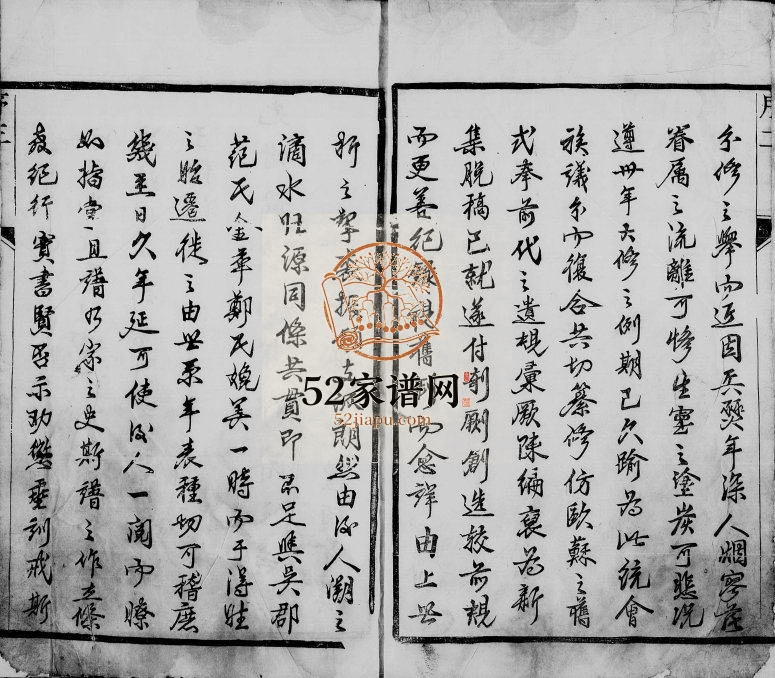 序二
分修之舉而近因兵燹年深人烟寥落
眷属之流離可慘生靈之塗炭可悲况
遵卅年大修之例期已久踰为此統會
族議分而復合共切纂修仿歐蘇之舊
式奉前代之遺規彙厥陳編裒为新
集脱稿已就遂付剞劂創造較前規
而更善纪 舊 而愈詳由上世
析之 朗然由後人溯之
滴水旺源同條共貫即不足與吴郡
范氏金華鄭氏媲美一時而于得姓
之始遷徙之由世系年表種切可稽庶
幾至日久年延可使後人一閲而瞭
如指掌且譜乃家之史斯譜之作立條
教纪行實書賢否示勸懲垂訓戒斯
序三
52家谱网
52jiapu.com